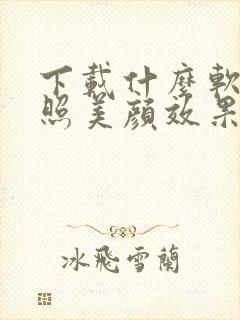 下載什麼軟
照美顔效果
冰飛雪蘭